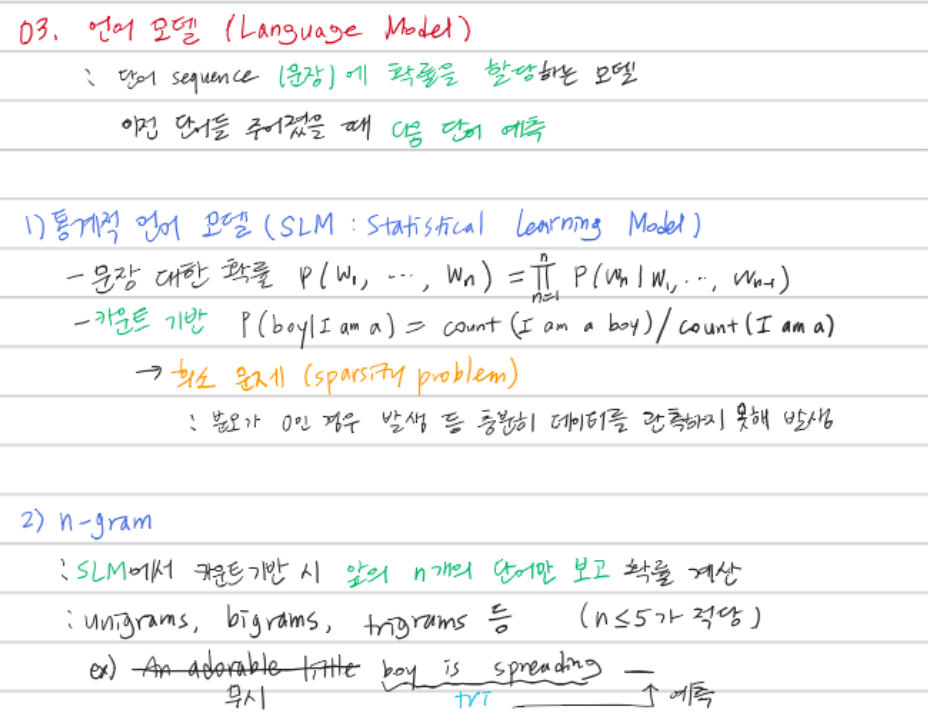 03. 언어 모델 (Language Model)
: 단어 sequence (문장)에 확률을 할당하는 모델
이전 단어들 주어졌을 때 다음 단어 예측
1) 통계적 언어 모델 (SLM : Statistical Learning Model)
- 문장 대한 확률 P(W₁, ..., Wn) = ∏ⁿₙ₌₁ P(Wn | W₁, ..., Wn-1)
- 카운트 기반 P(boy|I am a) = count (I am a boy) / count (I am a)
→ 희소 문제 (sparsity problem)
: 분모가 0인 경우 발생 등 충분히 데이터를 관측하지 못해 발생
2) n-gram
: SLM에서 카운트기반 시 앞의 n개의 단어만 보고 확률 계산
: unigrams, bigrams, trigrams 등 (n≤5가 적당)
ex) An adorable little boy is spreading _
무시 tri ↑ 예측